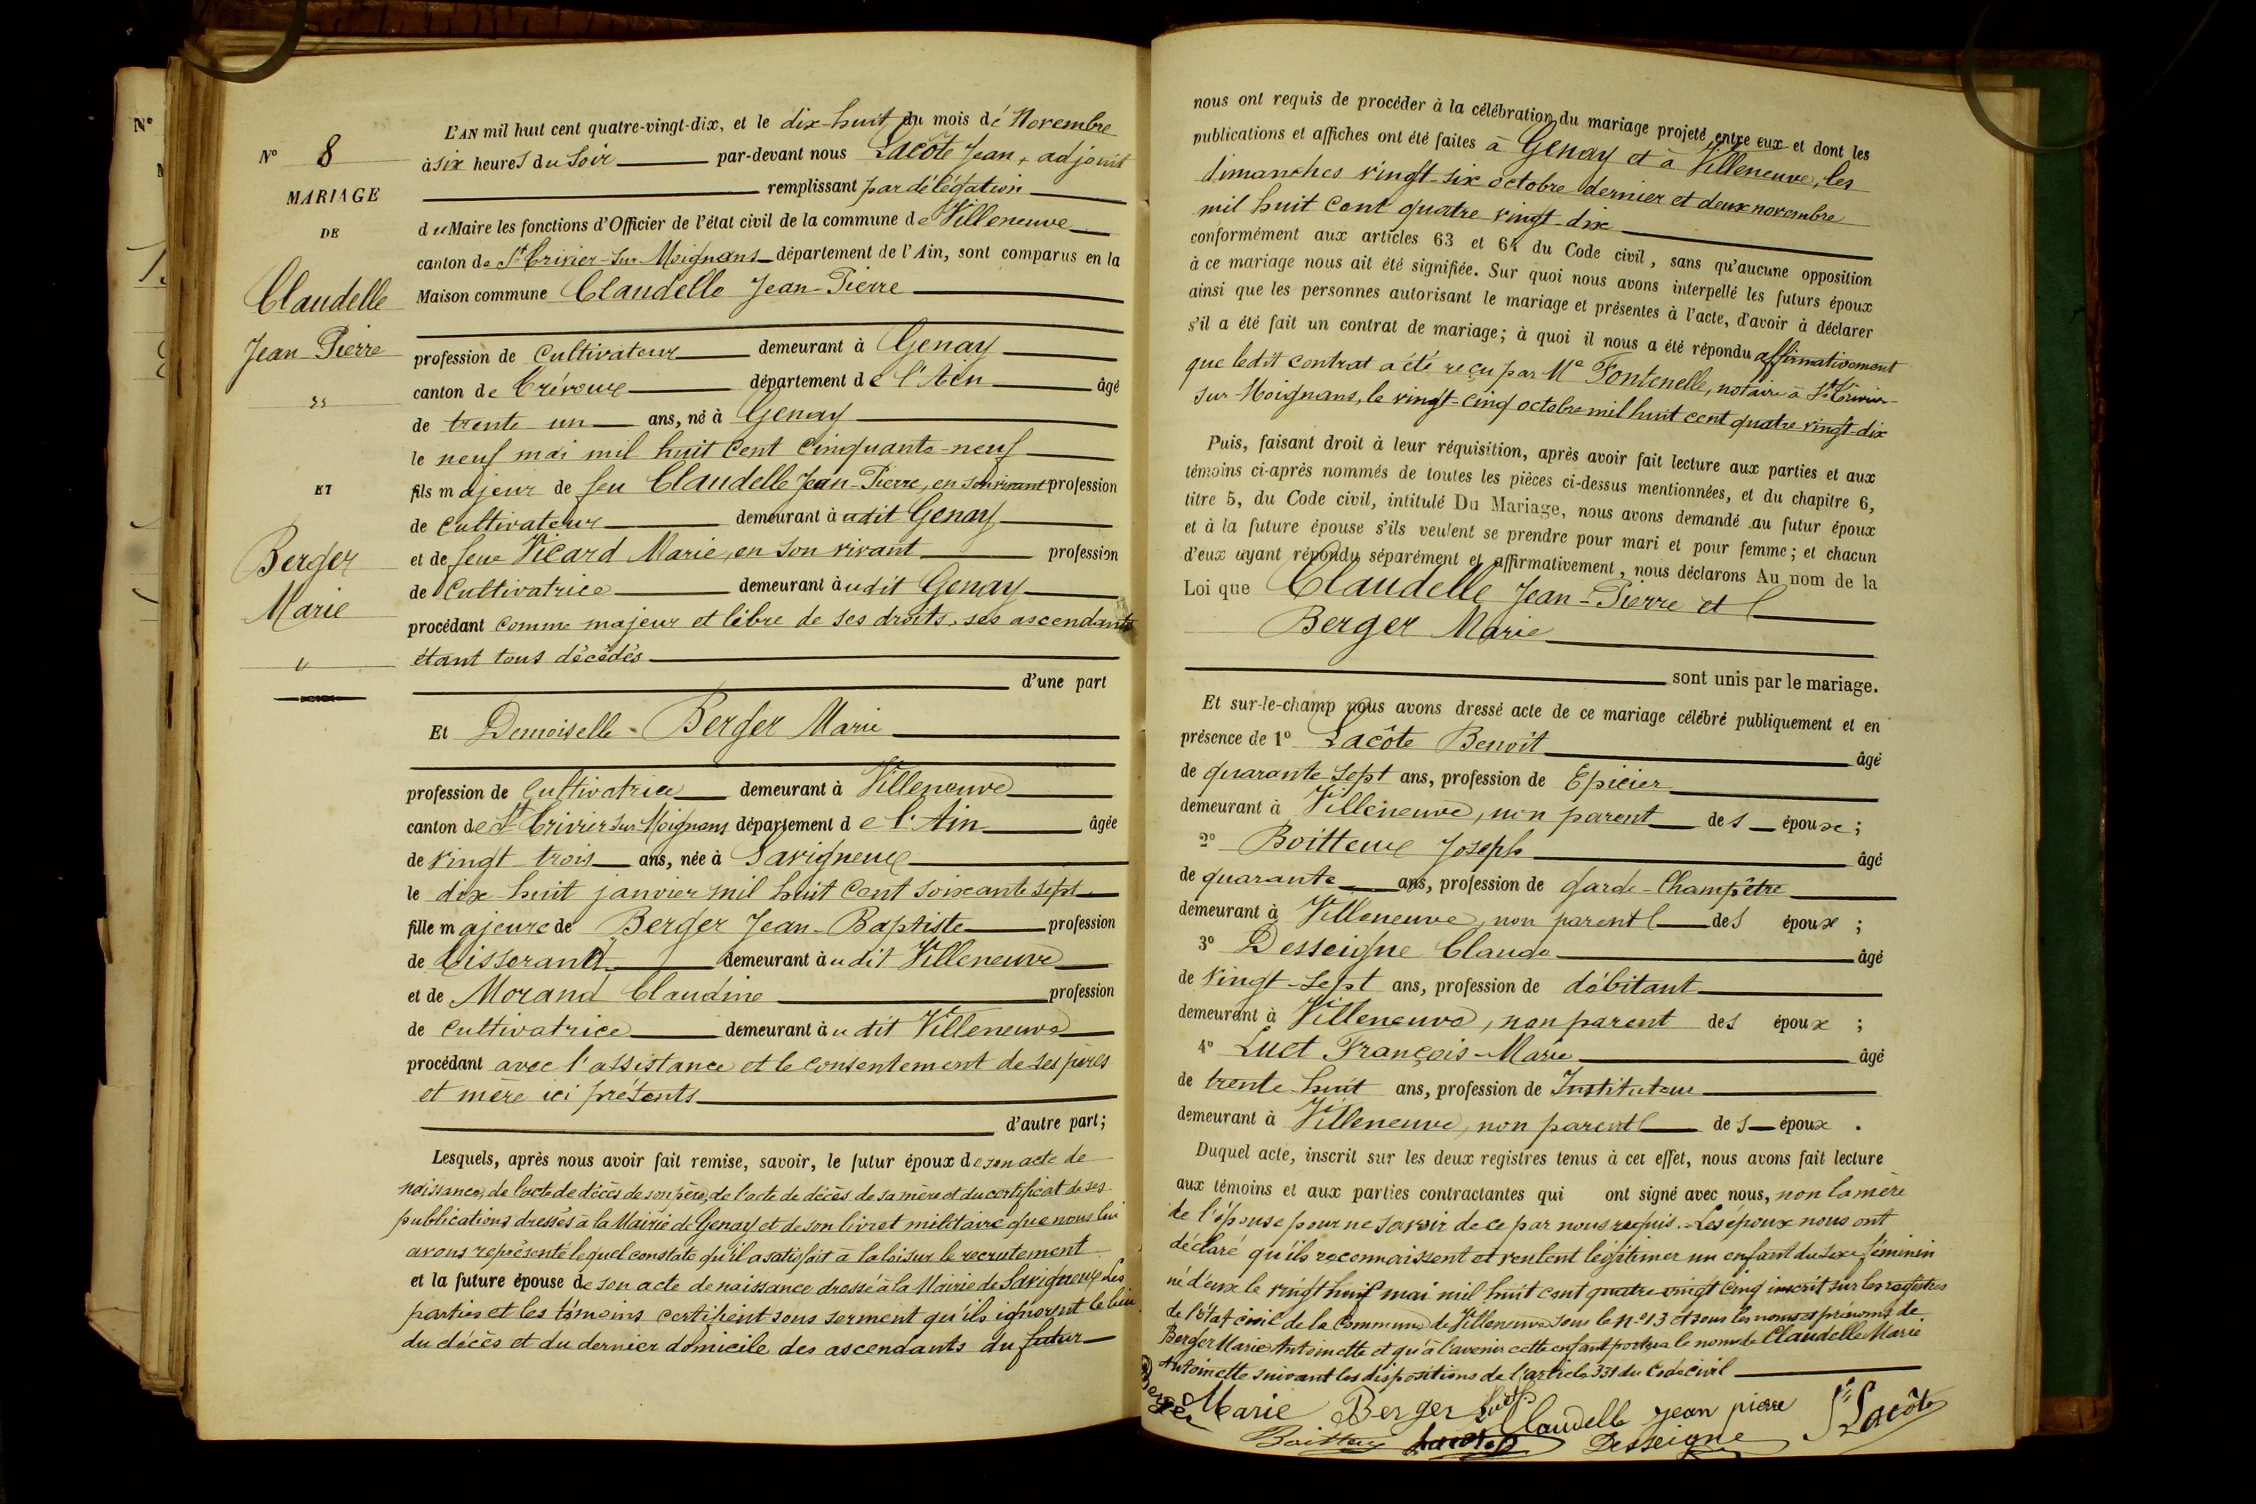 N°
N° 8
MARIAGE
DE
Claudelle
Jean-Pierre
"
ET
Berger
Marie
"
L'AN mil huit cent quatre-vingt-dix, et le dix-huit du mois de Novembre
à six heures du soir par-devant nous Lacôte Jean, adjoint
remplissant par délégation
du Maire les fonctions d'Officier de l'état civil de la commune de Villeneuve
canton de St Trivier-sur-Moignans département de l'Ain, sont comparus en la
Maison commune Claudelle Jean-Pierre
profession de Cultivateur demeurant à Genay
canton de Trévoux département de l'Ain âgé
de trente un ans, né à Genay
le neuf mai mil huit cent cinquante-neuf
fils majeur de feu Claudelle Jean-Pierre, en son vivant profession
de Cultivateur demeurant à udit Genay
et de feue Vicard Marie, en son vivant profession
de Cultivatrice demeurant à udit Genay
procédant comme majeur et libre de ses droits, ses ascendants
étant tous décédés
d'une part
Et Demoiselle Berger Marie
profession de Cultivatrice demeurant à Villeneuve
canton de St Trivier sur Moignans département de l'Ain âgée
de vingt trois ans, née à Savigneux
le dix-huit janvier mil huit cent soixante sept
fille majeure de Berger Jean-Baptiste profession
de Tisserand demeurant à udit Villeneuve
et de Morand Claudine profession
de cultivatrice demeurant à udit Villeneuve
procédant avec l'assistance et le consentement de ses pères
et mère ici présents
d'autre part;
Lesquels, après nous avoir fait remise, savoir, le futur époux de son acte de
naissance, de l'acte de décès de son père, de l'acte de décès de sa mère et du certificat de ses
publications dressés à la Mairie de Genay et de son livret militaire que nous lui
avons représenté lequel constate qu'il a satisfait à la loi sur le recrutement
et la future épouse de son acte de naissance dressé à la Mairie de Savigneux Les
parties et les témoins certifient sous serment qu'ils ignorent le lieu
du décès et du dernier domicile des ascendants du futur
nous ont requis de procéder à la célébration du mariage projeté entre eux et dont les
publications et affiches ont été faites à Genay et à Villeneuve, les
dimanches vingt-six octobre dernier et deux novembre
mil huit cent quatre vingt-dix
conformément aux articles 63 et 64 du Code civil, sans qu'aucune opposition
à ce mariage nous ait été signifiée. Sur quoi nous avons interpellé les futurs époux
ainsi que les personnes autorisant le mariage et présentes à l'acte, d'avoir à déclarer
s'il a été fait un contrat de mariage; à quoi il nous a été répondu affirmativement
que ledit contrat a été reçu par Me Fontenelle, notaire à St Trivier-
sur-Moignans, le vingt-cinq octobre mil huit cent quatre vingt-dix
Puis, faisant droit à leur réquisition, après avoir fait lecture aux parties et aux
témoins ci-après nommés de toutes les pièces ci-dessus mentionnées, et du chapitre 6,
titre 5, du Code civil, intitulé Du Mariage, nous avons demandé au futur époux
et à la future épouse s'ils veulent se prendre pour mari et pour femme; et chacun
d'eux ayant répondu séparément et affirmativement, nous déclarons Au nom de la
Loi que Claudelle Jean-Pierre et
Berger Marie
sont unis par le mariage.
Et sur-le-champ nous avons dressé acte de ce mariage célébré publiquement et en
présence de 1° Lacôte Benoit âgé
de quarante-sept ans, profession de Epicier
demeurant à Villeneuve, non parent des époux;
2° Boitteux Joseph âgé
de quarante ans, profession de garde-Champêtre
demeurant à Villeneuve, non parent des époux;
3° Desseigne Claude âgé
de vingt-sept ans, profession de débitant
demeurant à Villeneuve, non parent des époux;
4° Luet François-Marie âgé
de trente huit ans, profession de Instituteur
demeurant à Villeneuve, non parent des époux.
Duquel acte, inscrit sur les deux registres tenus à cet effet, nous avons fait lecture
aux témoins et aux parties contractantes qui ont signé avec nous, non la mère
de l'épouse pour ne savoir de ce par nous requis. Les époux nous ont
déclaré qu'ils reconnaissent et veulent légitimer un enfant du sexe féminin
né d'eux le vingt huit mai mil huit cent quatre vingt cinq inscrit sur les registres
de l'état civil de la commune de Villeneuve sous le n° 13 et sous les noms et prénoms de
Berger Marie Antoinette et qu'à l'avenir cette enfant portera le nom de Claudelle Marie
Antoinette suivant les dispositions de l'article 331 du Code civil
Berger Marie Berger Luet Claudelle jean pierre Lacôte
Boitteux Lacôte Desseigne